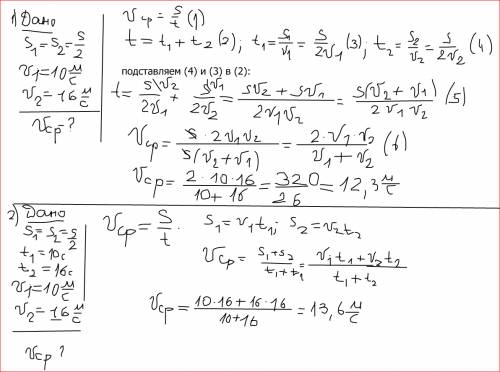 1) Дано
S₁ = S₂ = S/2
V₁ = 10 м/с
V₂ = 16 м/с
Vср - ?
Vср = S/t (1)
t = t₁ + t₂ (2); t₁ = S₁/V₁ = S/2V₁ (3); t₂ = S₂/V₂ = S/2V₂ (4)
подставляем (4) и (3) в (2):
t = S\V₂/2V₁ + S\V₁/2V₂ = SV₂ + SV₁/2V₁V₂ = S(V₂ + V₁)/2V₁V₂ (5)
Vср = S · 2V₁V₂/S(V₂ + V₁) = 2 · V₁ · V₂/V₁ + V₂ (6)
Vср = 2 · 10 · 16/10 + 16 = 320/26 = 12,3 м/с
2) Дано
S₁ = S₂ = S/2
t₁ = 10с
t₂ = 16с
V₁ = 10 м/с
V₂ = 16 м/с
Vср ?
Vср = S/t. S₁ = V₁t₁; S₂ = V₂t₂
Vср = S₁ + S₂/t₁ + t₁ = V₁t₁ + V₂t₂/t₁ + t₂
Vср = 10·16 + 16·16/10 + 16 = 13,6 м/с